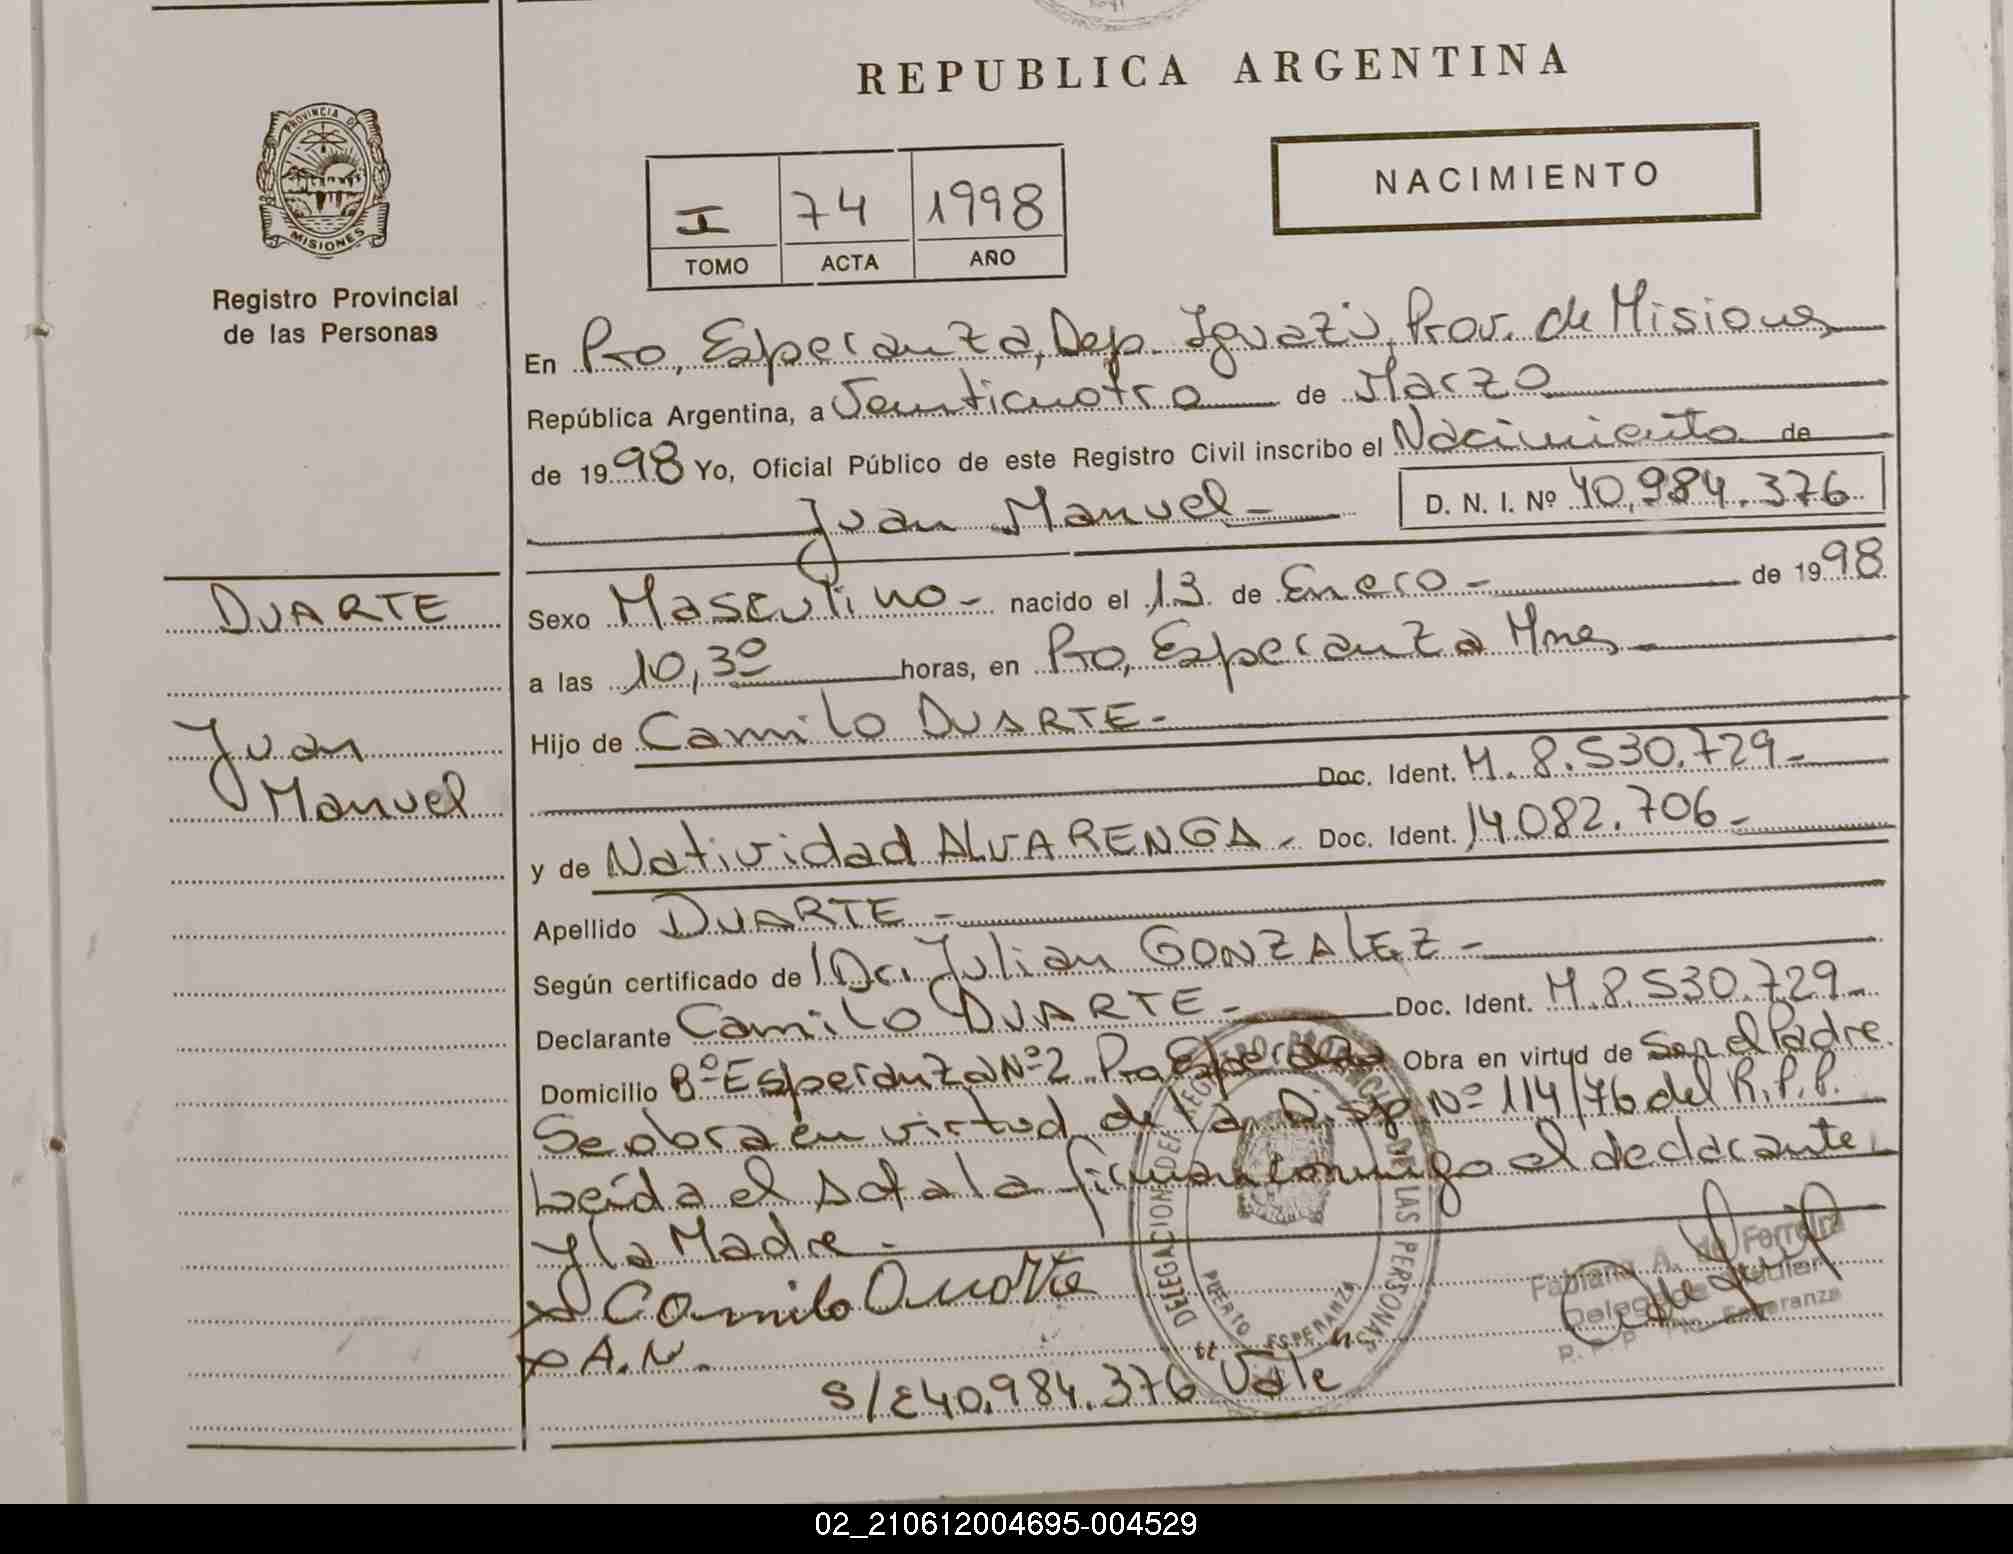 REPUBLICA ARGENTINA
PROVINCIA DE
MISIONES
Registro Provincial
de las Personas
NACIMIENTO
I 74 1998
TOMO ACTA AÑO
En Pto, Esperanza, Dep. Iguazú, Prov. de Misiones
República Argentina, a Venticuatro de Marzo
de 1998 Yo, Oficial Público de este Registro Civil inscribo el Nacimiento de
Juan Manuel - D. N. I. Nº 40.984.376
DUARTE
Juan
Manuel
Sexo Masculino - nacido el 13 de Enero - de 1998
a las 10,30 horas, en Pto, Esperanza Mnes -
Hijo de Camilo DUARTE -
Doc. Ident. M. 8.530.729 -
y de Natividad ALVARENGA - Doc. Ident. 14.082.706 -
Apellido DUARTE -
Según certificado de Dr. Julian GONZALEZ -
Declarante Camilo DUARTE - Doc. Ident. M.8.530.729 -
Domicilio Bº Esperanza Nº 2 Pto Esperanza Obra en virtud de Ser el Padre
Se obra en virtud de la Disp Nº 114/76 del R.P.P.
Leída el Acta la firman conmigo el declarante
y la Madre.-
Camilo Duarte
A.N.
S/E 40.984.376 "Vale"
DELEGACION DEL REGISTRO PROVINCIAL DE LAS PERSONAS
PUERTO ESPERANZA
Fabiana A. de Ferreira
Delegada Titular
R. P. P. Pto. Esperanza
02_210612004695-004529